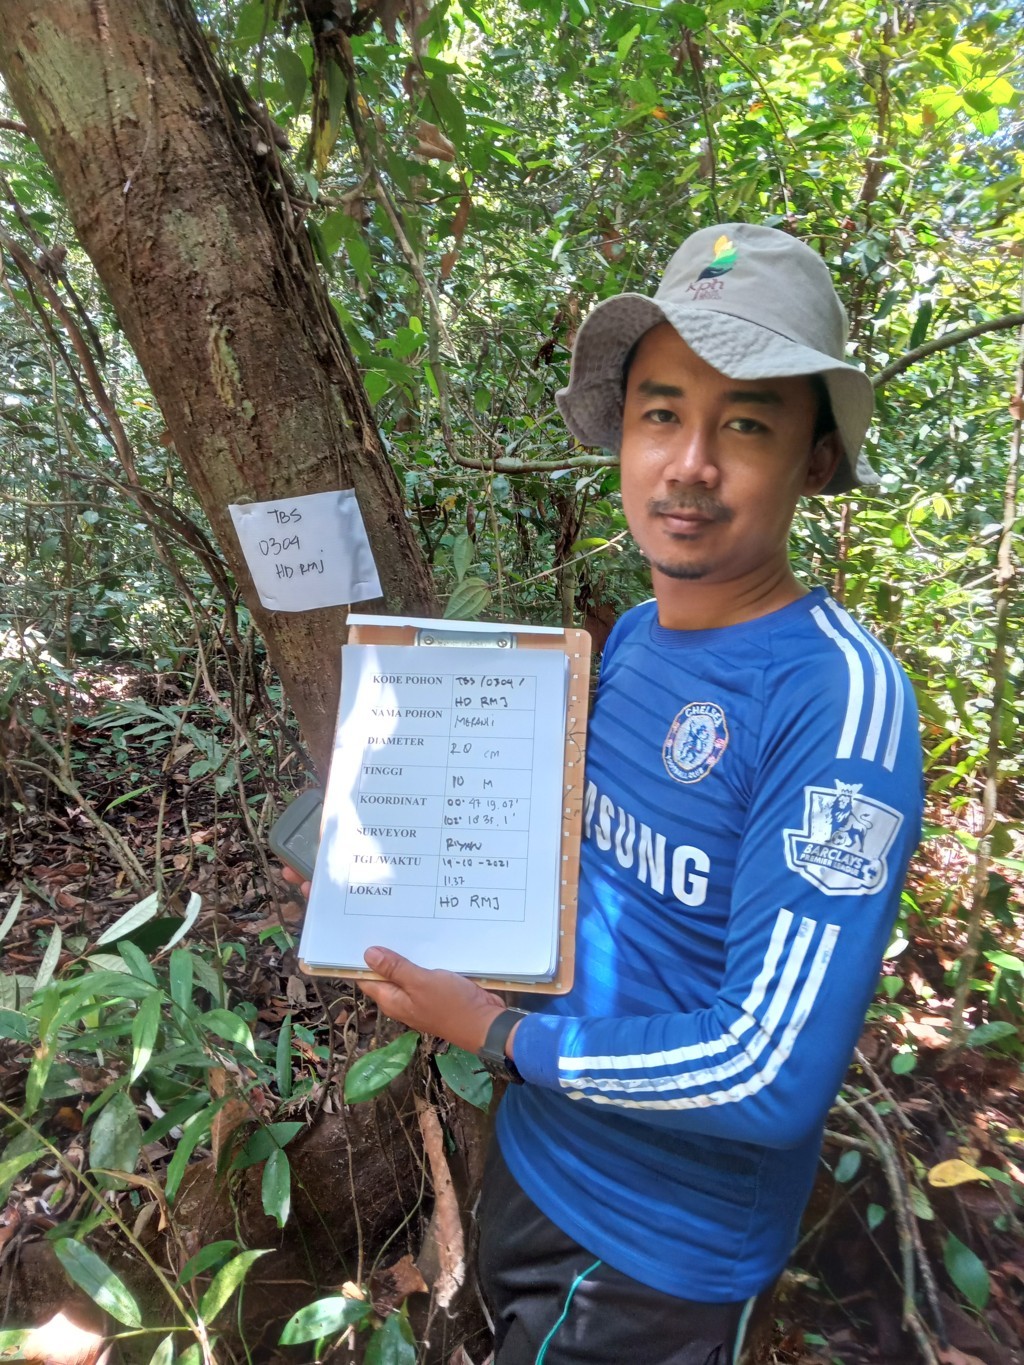 TBS
0304
HD RMJ
KODE POHON TBS/0304/
HD RMJ
NAMA POHON MERAWI
DIAMETER 20 cm
TINGGI 10 M
KOORDINAT 00° 47 19.07'
102° 10 35.1'
SURVEYOR
TGL/WAKTU 19-10-2021
11.37
LOKASI HD RMJ
kph
CHELSEA
FOOTBALL CLUB
MSUNG
BARCLAYS
PREMIER LEAGUE